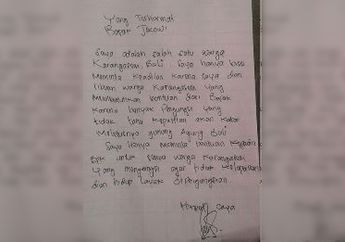 Yang Terhormat
Bapak Jokowi
Saya adalah salah satu warga
Karangasem, Bali. Saya hanya bisa
Meminta Keadilan Karna Saya dan
warga Karangasem yang
Membutuhkan bantuan dari Bapak
Karena banyak Pengungsi yang
tidak tahu Kepulihan akan
Meletusnya gunung Agung Bali
Saya hanya Meminta bantuan Kepada
untuk Semua warga Karangasem
yang mengungsi agar tidak Kelaparan
dan hidup layak dipengungsian
Hormat saya